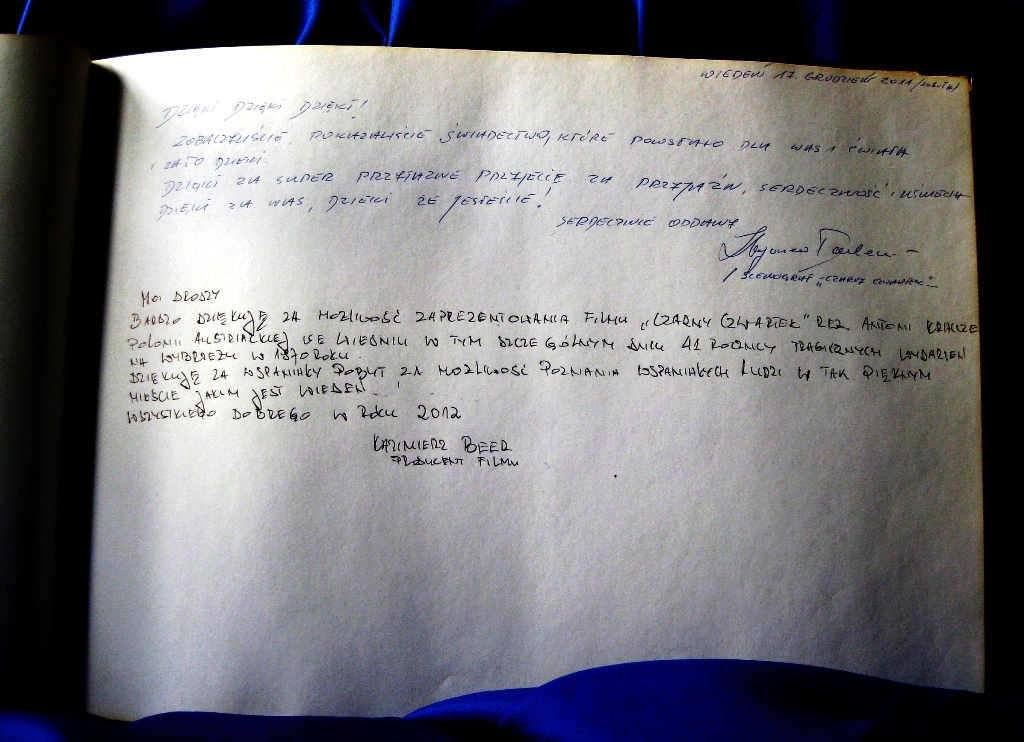 WIEDEŃ 17. GRUDZIEŃ 2011 /sobota/
DZIĘKI DZIĘKI DZIĘKI!
ZOBACZYLIŚCIE, POKAZALIŚCIE ŚWIADECTWO, KTÓRE POWSTAŁO DLA WAS I ŚWIATA
I ZA TO DZIĘKI.
DZIĘKI ZA SUPER PRZYJAZNE PRZYJĘCIE ZA PRZYJAŹŃ, SERDECZNOŚĆ I UŚMIECH
DZIĘKI ZA WAS, DZIĘKI ŻE JESTEŚCIE!
SERDECZNIE ODDANY
/ SCENOGRAF „CZARNY CZWARTEK"
MOI DRODZY
BARDZO DZIĘKUJĘ ZA MOŻLIWOŚĆ ZAPREZENTOWANIA FILMU „CZARNY CZWARTEK" REŻ. ANTONI KRAUZE
POLONII AUSTRIACKIEJ WE WIEDNIU W TYM SZCZEGÓLNYM DNIU 41 ROCZNICY TRAGICZNYCH WYDARZEŃ
NA WYBRZEŻU W 1970 ROKU.
DZIĘKUJĘ ZA WSPANIAŁY POBYT ZA MOŻLIWOŚĆ POZNANIA WSPANIAŁYCH LUDZI W TAK PIĘKNYM
MIEŚCIE JAKIM JEST WIEDEŃ !
WSZYSTKIEGO DOBREGO W ROKU 2012
KAZIMIERZ BEER
PRODUCENT FILMU